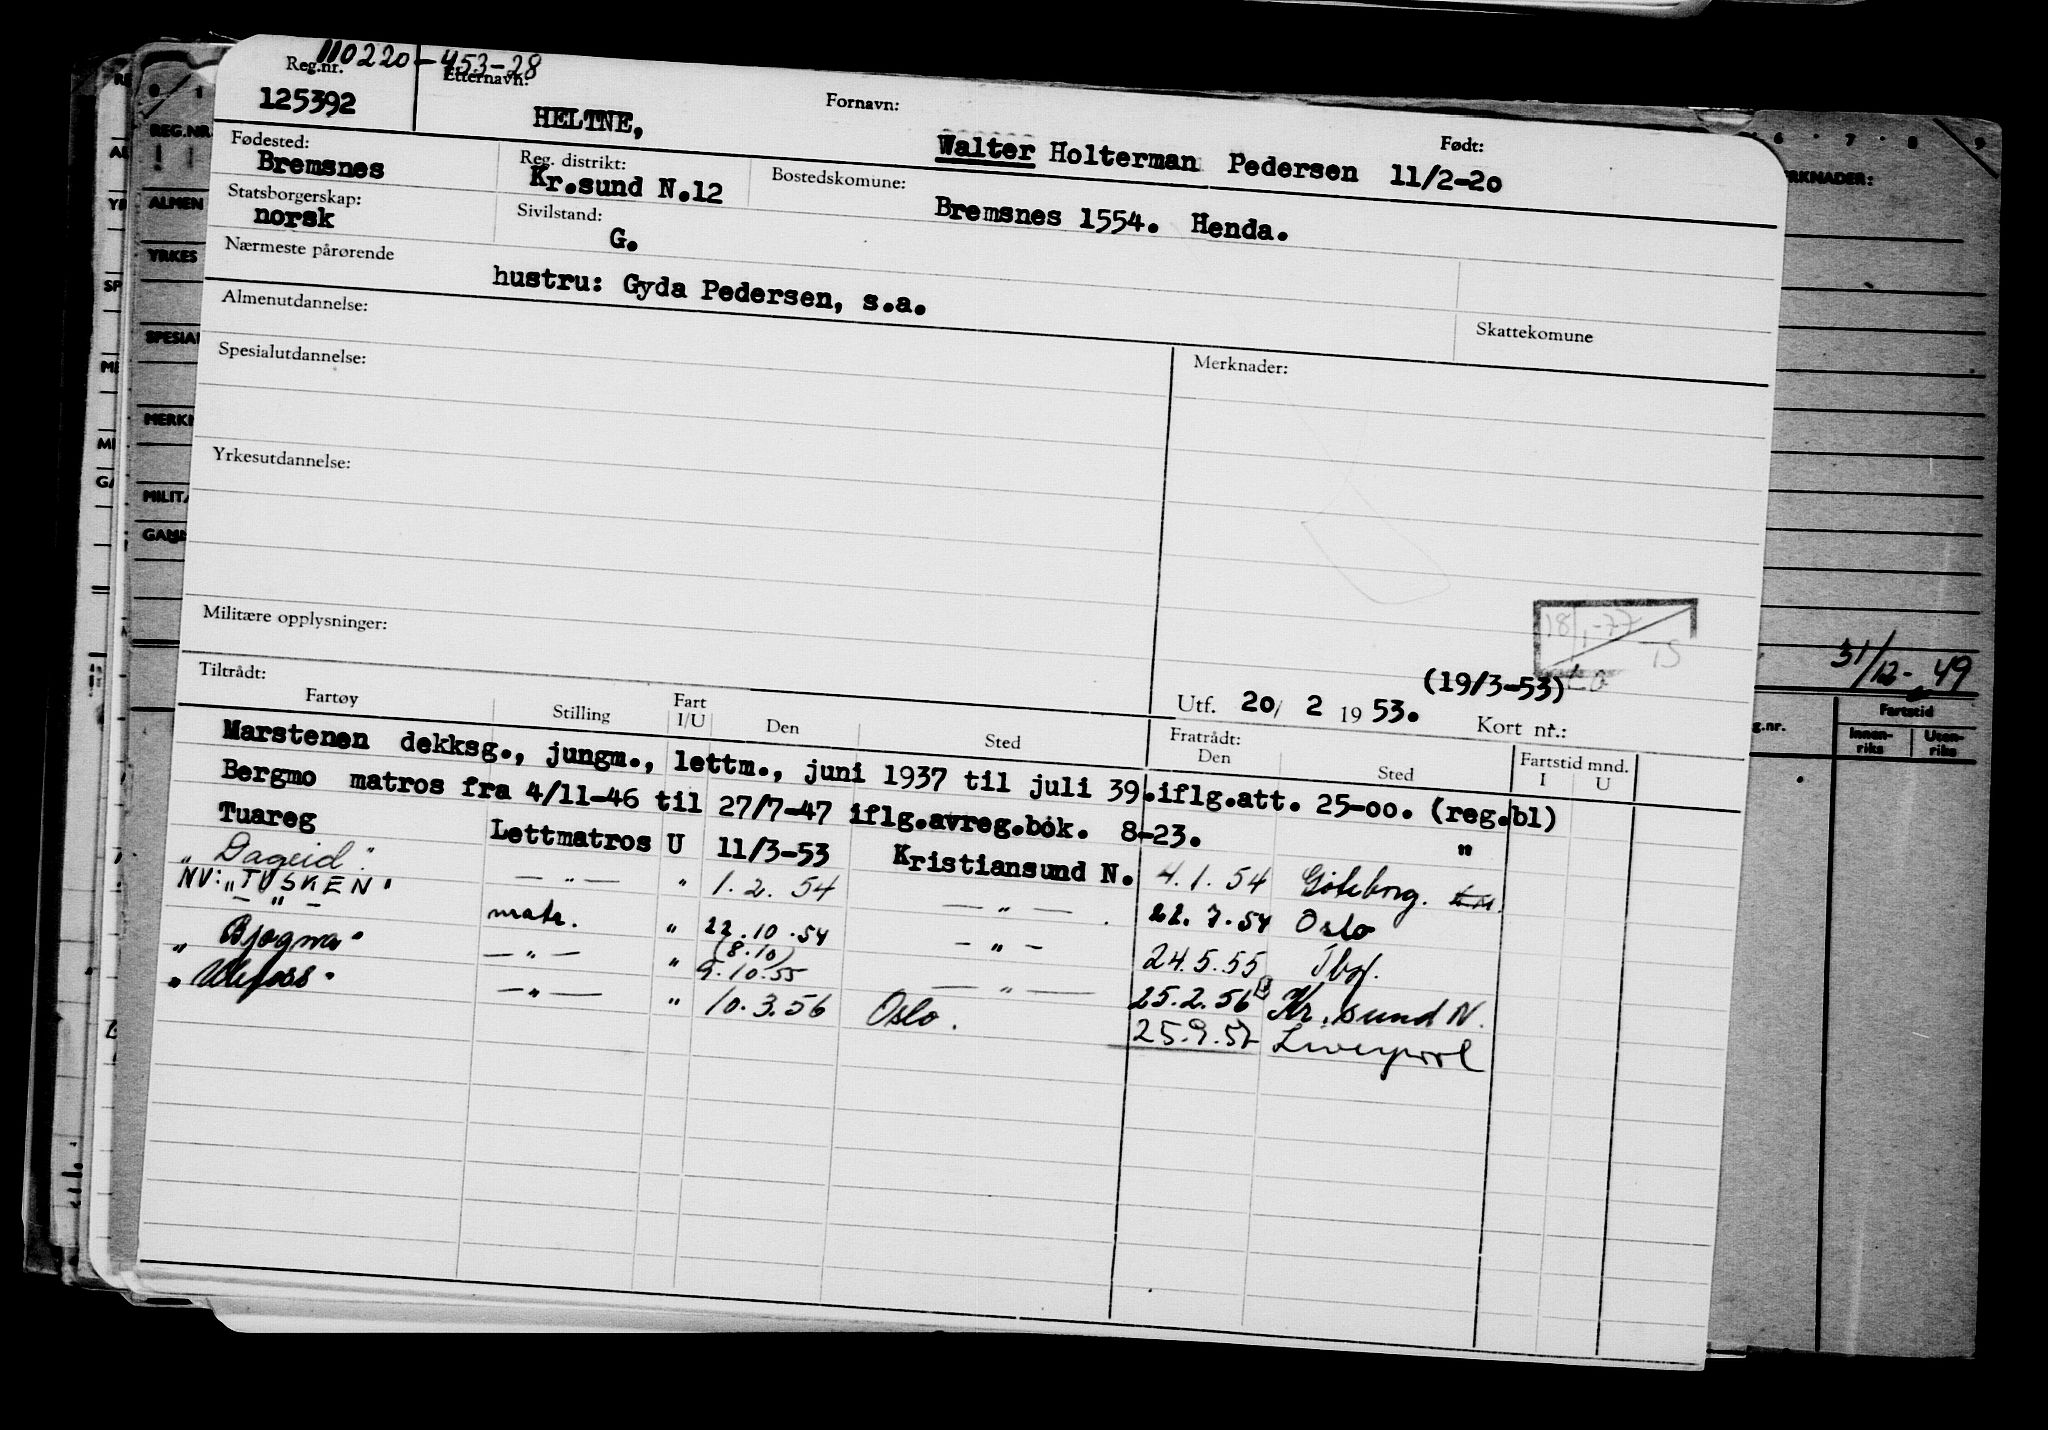 110220-453-28
Reg.nr. Etternavn: Fornavn: Født:
125392 HELTNE, Walter Holterman Pedersen 11/2-20
Fødested: Reg. distrikt: Bostedskomune:
Bremsnes Kr.sund N.12 Bremsnes 1554. Henda.
Statsborgerskap: Sivilstand:
norsk G.
Nærmeste pårørende
hustru: Gyda Pedersen, s.a.
Almenutdannelse: Skattekomune
Spesialutdannelse: Merknader:
Yrkesutdannelse:
18/1-77
TS
Militære opplysninger:
(19/3-53)
Utf. 20/ 2 1953. Kort nr.:
Tiltrådt: Fratrådt:
Fartøy Stilling Fart I/U Den Sted Den Sted Fartstid mnd. I U
Marstenen dekksg., jungm., lettm., juni 1937 til juli 39.iflg.att. 25-oo. (reg.bl)
Bergmo matros fra 4/11-46 til 27/7-47 iflg.avreg.bok. 8-23. "
Tuareg Lettmatros U 11/3-53 Kristiansund N. 4.1.54 Gøteborg.
"Dageid" — " — " 1.2.54 — " — 22.7.54 Oslo
NV: "TUSKEN"
— " — matr. " 22.10.54 — " — 24.5.55 Tbg.
(8.10)
"Bjogna" — " — " 9.10.55 — " — 25.2.56 Kr.sund N.
"Ulefoss" — " — " 10.3.56 Oslo. 25.9.57 Liverpool
REG.NR.
ALMEN
YRKES
SPESIAL
MERKN
MILITÆ
RKNADER:
6 7 8 9
31/12-49
Fartstid
g.nr. Innenriks Utenriks